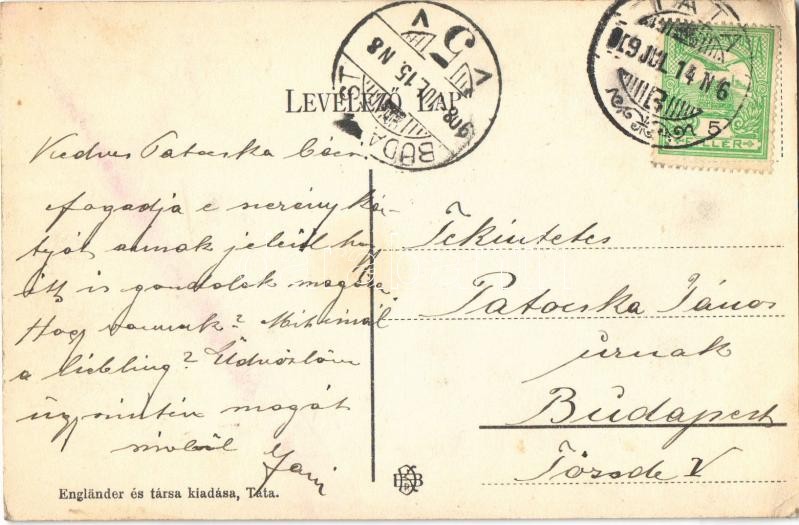 TATA
909 JUL 14 N 6
5
FILLÉR
BUDAPEST
908 JUL. 15. N 8
V 5 V
LEVELEZŐ LAP
Kedves Patocska bácsi
fogadja e szerény kár-
tyát annak jeléül hogy
itt is gondolok magára
Hogy vannak? Mit csinál
a liebling? Üdvözlöm
úgyszintén magát
szívből Jani
Tekintetes
Patocska János
úrnak
Budapest
Tőzsde V
Engländer és társa kiadása, Tata.